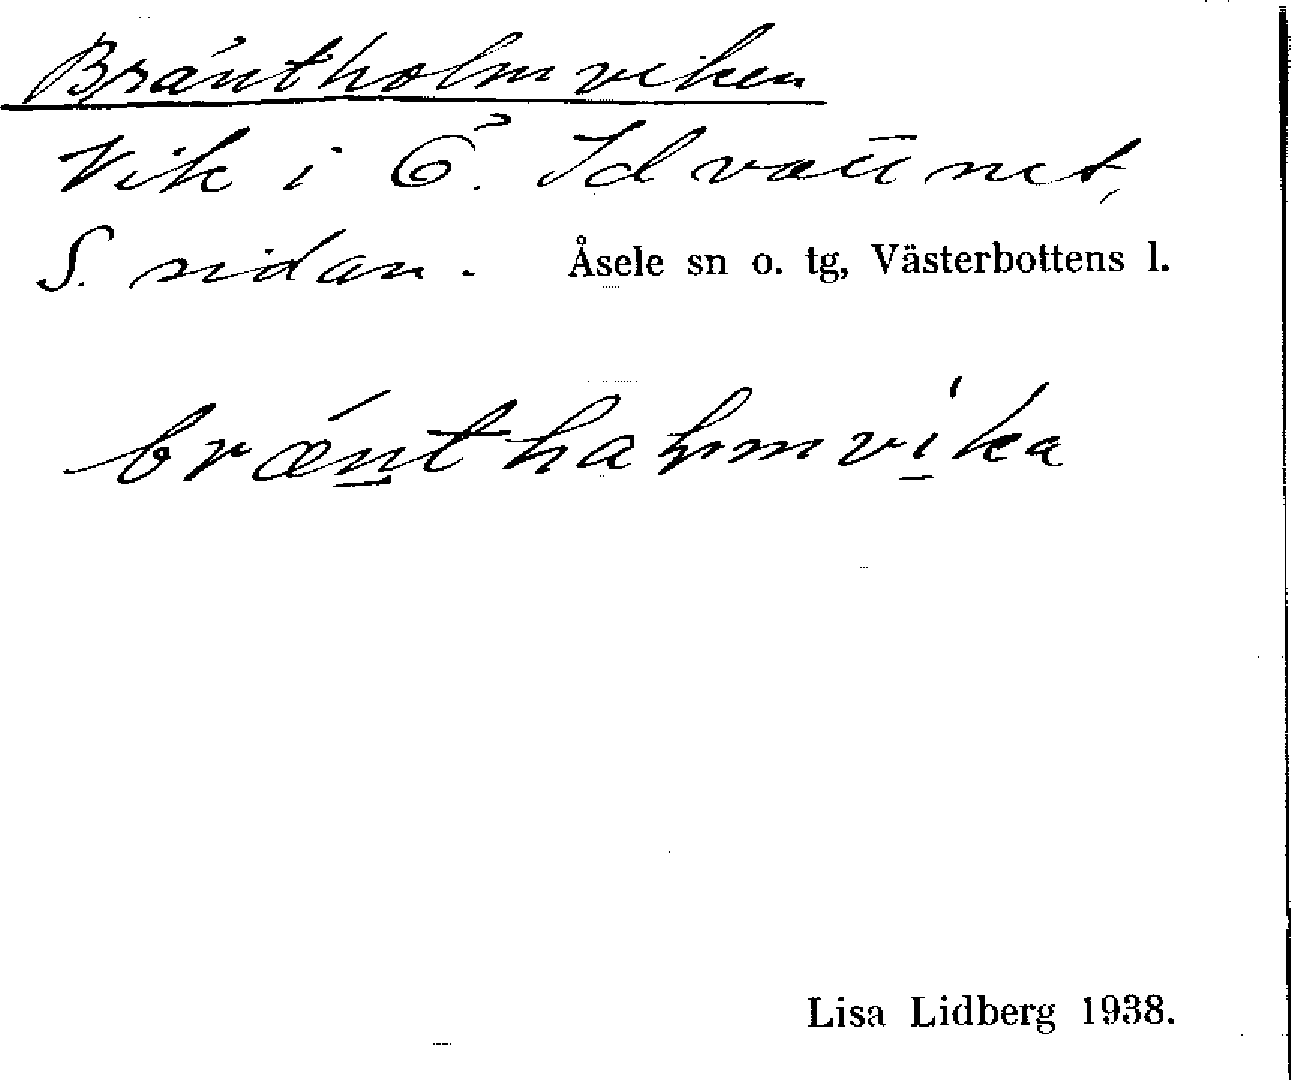 Bräntholmviken
Vik i Ö. Idvattnet,
S. sidan. Åsele sn o. tg, Västerbottens l.
brænthaḷmvika
Lisa Lidberg 1938.